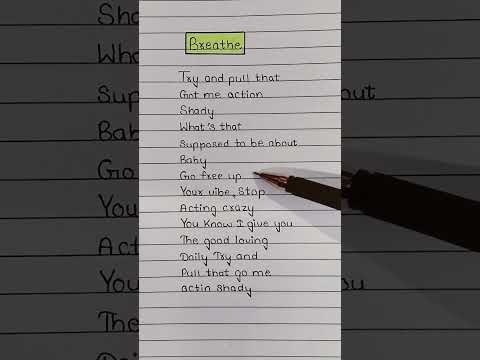 Breathe
Try and pull that
Got me action
Shady
What's that
Supposed to be about
Baby
Go free up
Your vibe, Stop
Acting crazy
You Know I give you
The good loving
Daily Try and
Pull that go me
actin Shady